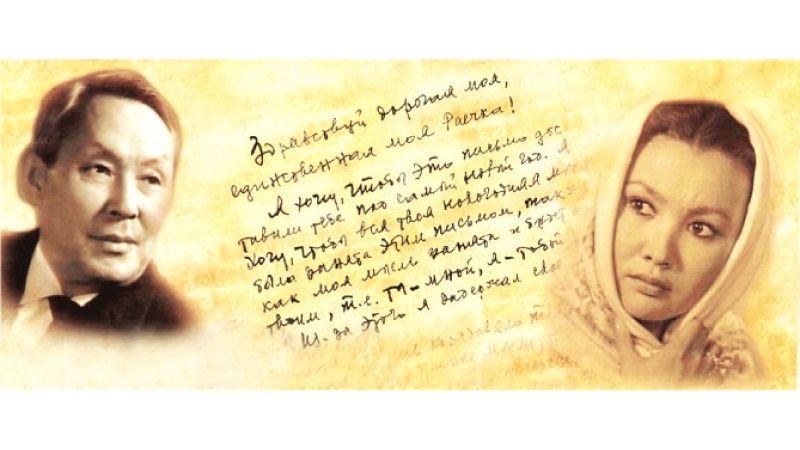 Здравсвуй дорогая моя,
единсвенная моя Раечка!
Я хочу, чтобы это письмо дос
тавили тебе под самый новый год. Я
хочу, чтобы вся твоя новогодняя мы
была занята этим письмом, так
как моя мысль занята и будет
твоим, т.е. ты – мной, я – тобой
Из-за этого я задержал сво